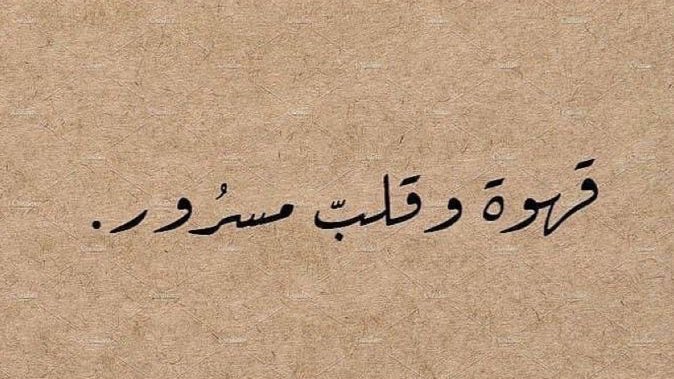 قهوة و قلبّ مسرُور.